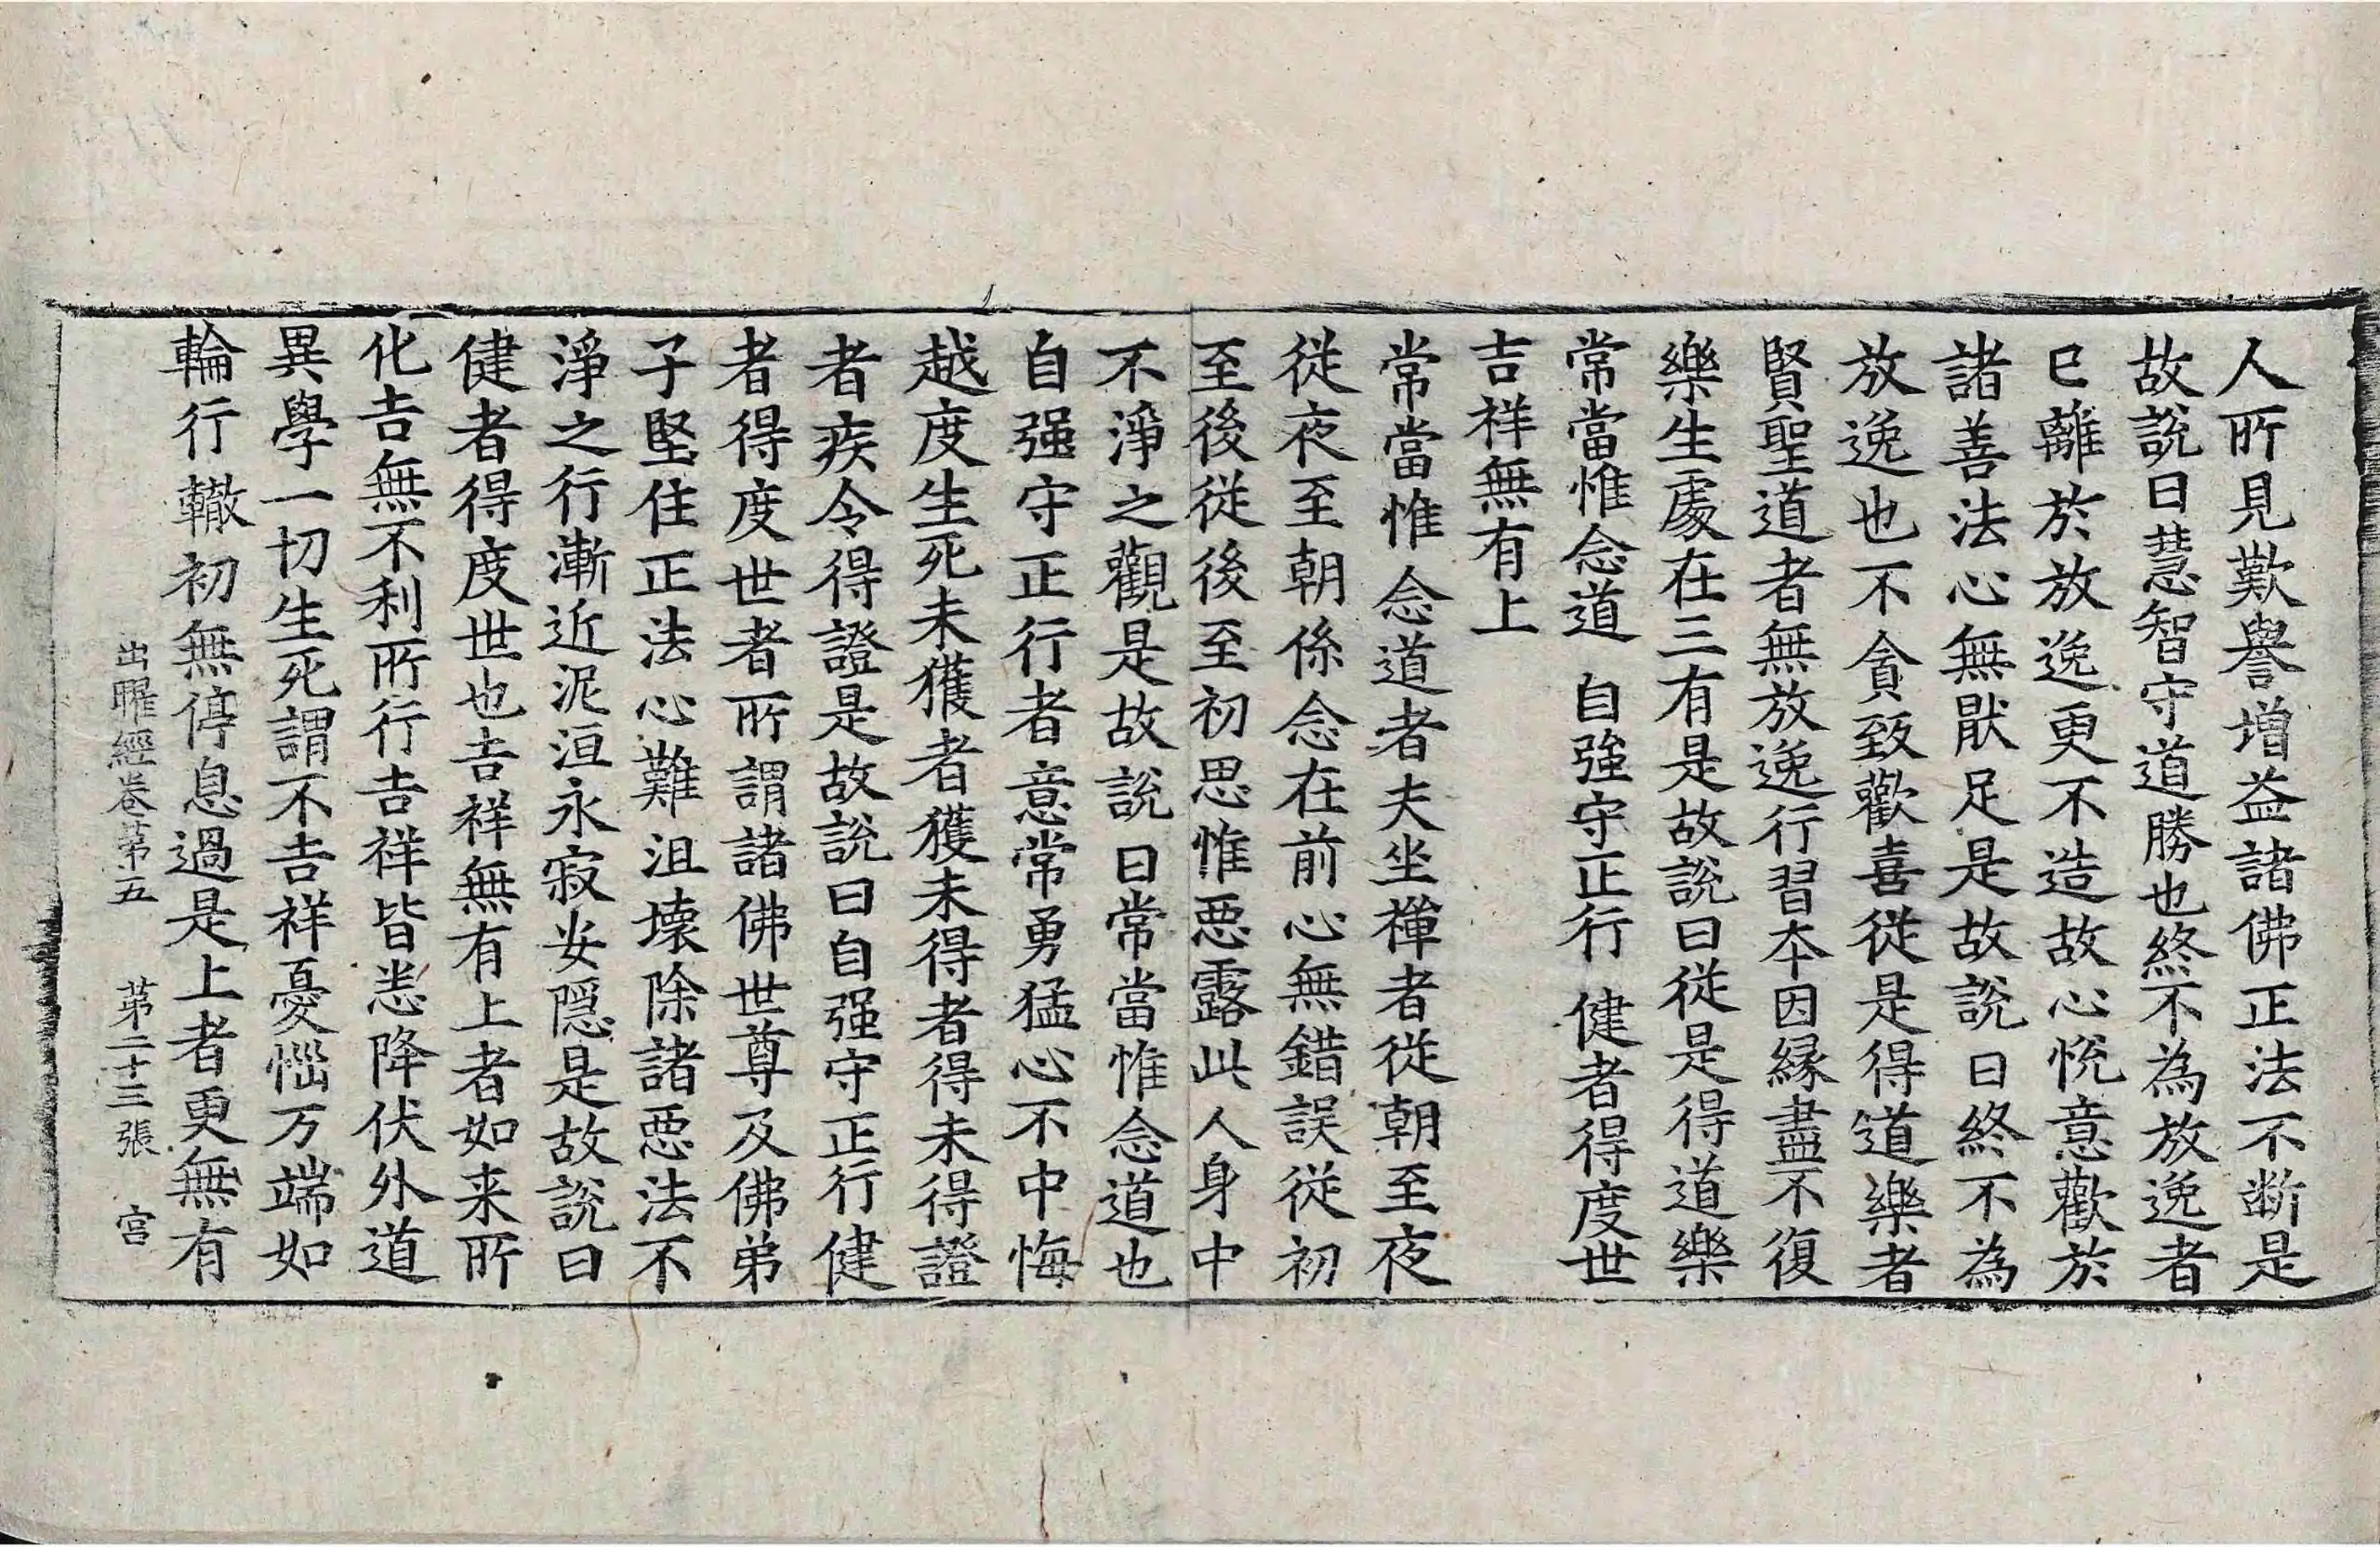 人所見歎譽增益諸佛正法不断是
故說曰慧智守道勝也終不為放逸者
已離於放逸更不造故心悅意歡於
諸善法心無猒足是故說曰終不為
放逸也不貪致歡喜從是得道樂者
賢聖道者無放逸行習本因緣盡不復
樂生處在三有是故說曰從是得道樂
常當惟念道　自強守正行　健者得度世
吉祥無有上
常當惟念道者夫坐禪者從朝至夜
從夜至朝係念在前心無錯誤從初
至後從後至初思惟惡露此人身中
不淨之觀是故說曰常當惟念道也
自强守正行者意常勇猛心不中悔
越度生死未獲者獲未得者得未得證
者疾令得證是故說曰自强守正行健
者得度世者所謂諸佛世尊及佛弟
子堅住正法心難沮壞除諸惡法不
淨之行漸近泥洹永寂安隱是故說曰
健者得度世也吉祥無有上者如来所
化吉無不利所行吉祥皆悉降伏外道
異學一切生死謂不吉祥憂惱万端如
輪行轍初無停息過是上者更無有
出曜經卷第五　第二十三張　宫